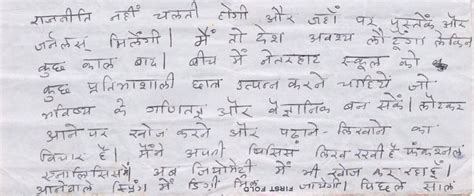 राजनीति नहीं चलती होगी और जहाँ पर पुस्तकें और
जर्नलस् मिलेंगी। मैं तो देश अवश्य लौटूँगा लेकिन
कुछ काल बाद। बीच में नेतरहाट स्कूल को
कुछ प्रतिभाशाली छात्र उत्पन्न करने चाहिये जो
भविष्य के गणितज्ञ और वैज्ञानिक बन सकें। लौटकर
आने पर खोज करने और पढ़ाने-लिखाने का
विचार है। मैंने अपनी थिसिस लिख रखी है फंकशनल
एनालिसिसमें अब जियोमेट्री में भी खोज कर रहा हूँ।
आनेवाले स्प्रिंग में डिग्री मिल जायेगी
FIRST FOLD